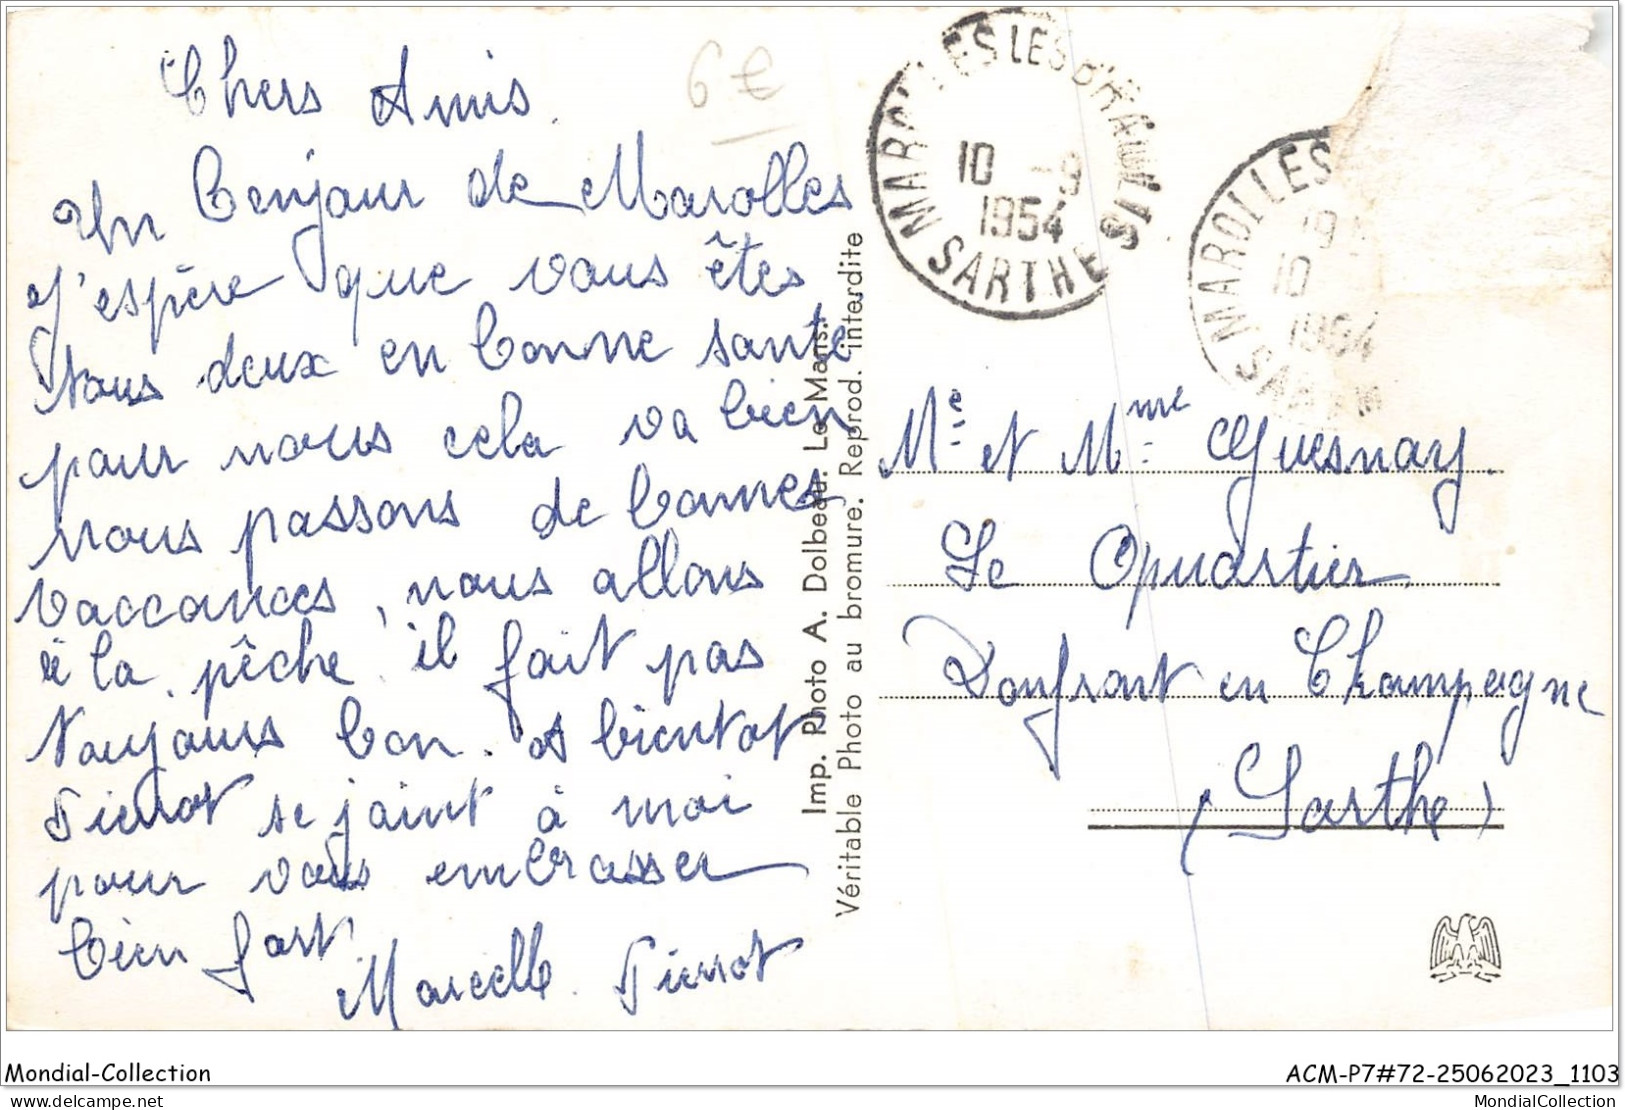 Chers Amis.
6 €
Un bonjour de Marolles
J'espère que vous êtes
tous deux en bonne sante
pour nous cela va bien
nous passons de bonnes
vaccances, nous allons
à la pêche il fait pas
toujours bon. A bientot
Pierrot se joint à moi
pour vous embrasser
bien fort
Marcelle. Pierrot
Imp. Photo A. Dolbeau. Le Mans.
Véritable Photo au bromure. Reprod. interdite
MAROLLES LES BRAULTS
10 -9
1954
SARTHE
MAROLLES
10
1954
Mr et Mme Guesnay.
Le Quartier
Domfront en Champagne
(Sarthe)
Mondial-Collection
ACM-P7#72-25062023_1103
delcampe.net
MondialCollection